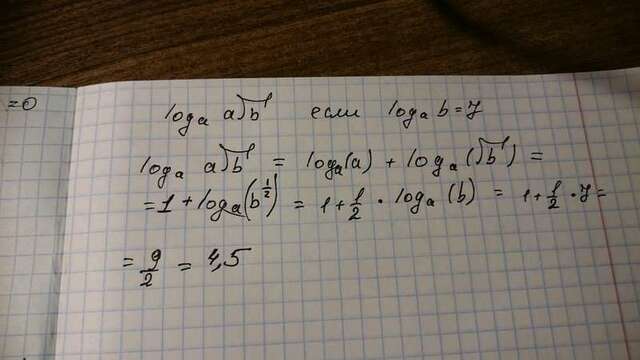 log a a√b если log a b = 7
log a a√b = log a (a) + log a (√b) =
= 1 + log a (b^(1/2)) = 1 + 1/2 · log a (b) = 1 + 1/2 · 7 =
= 9/2 = 4,5
=0